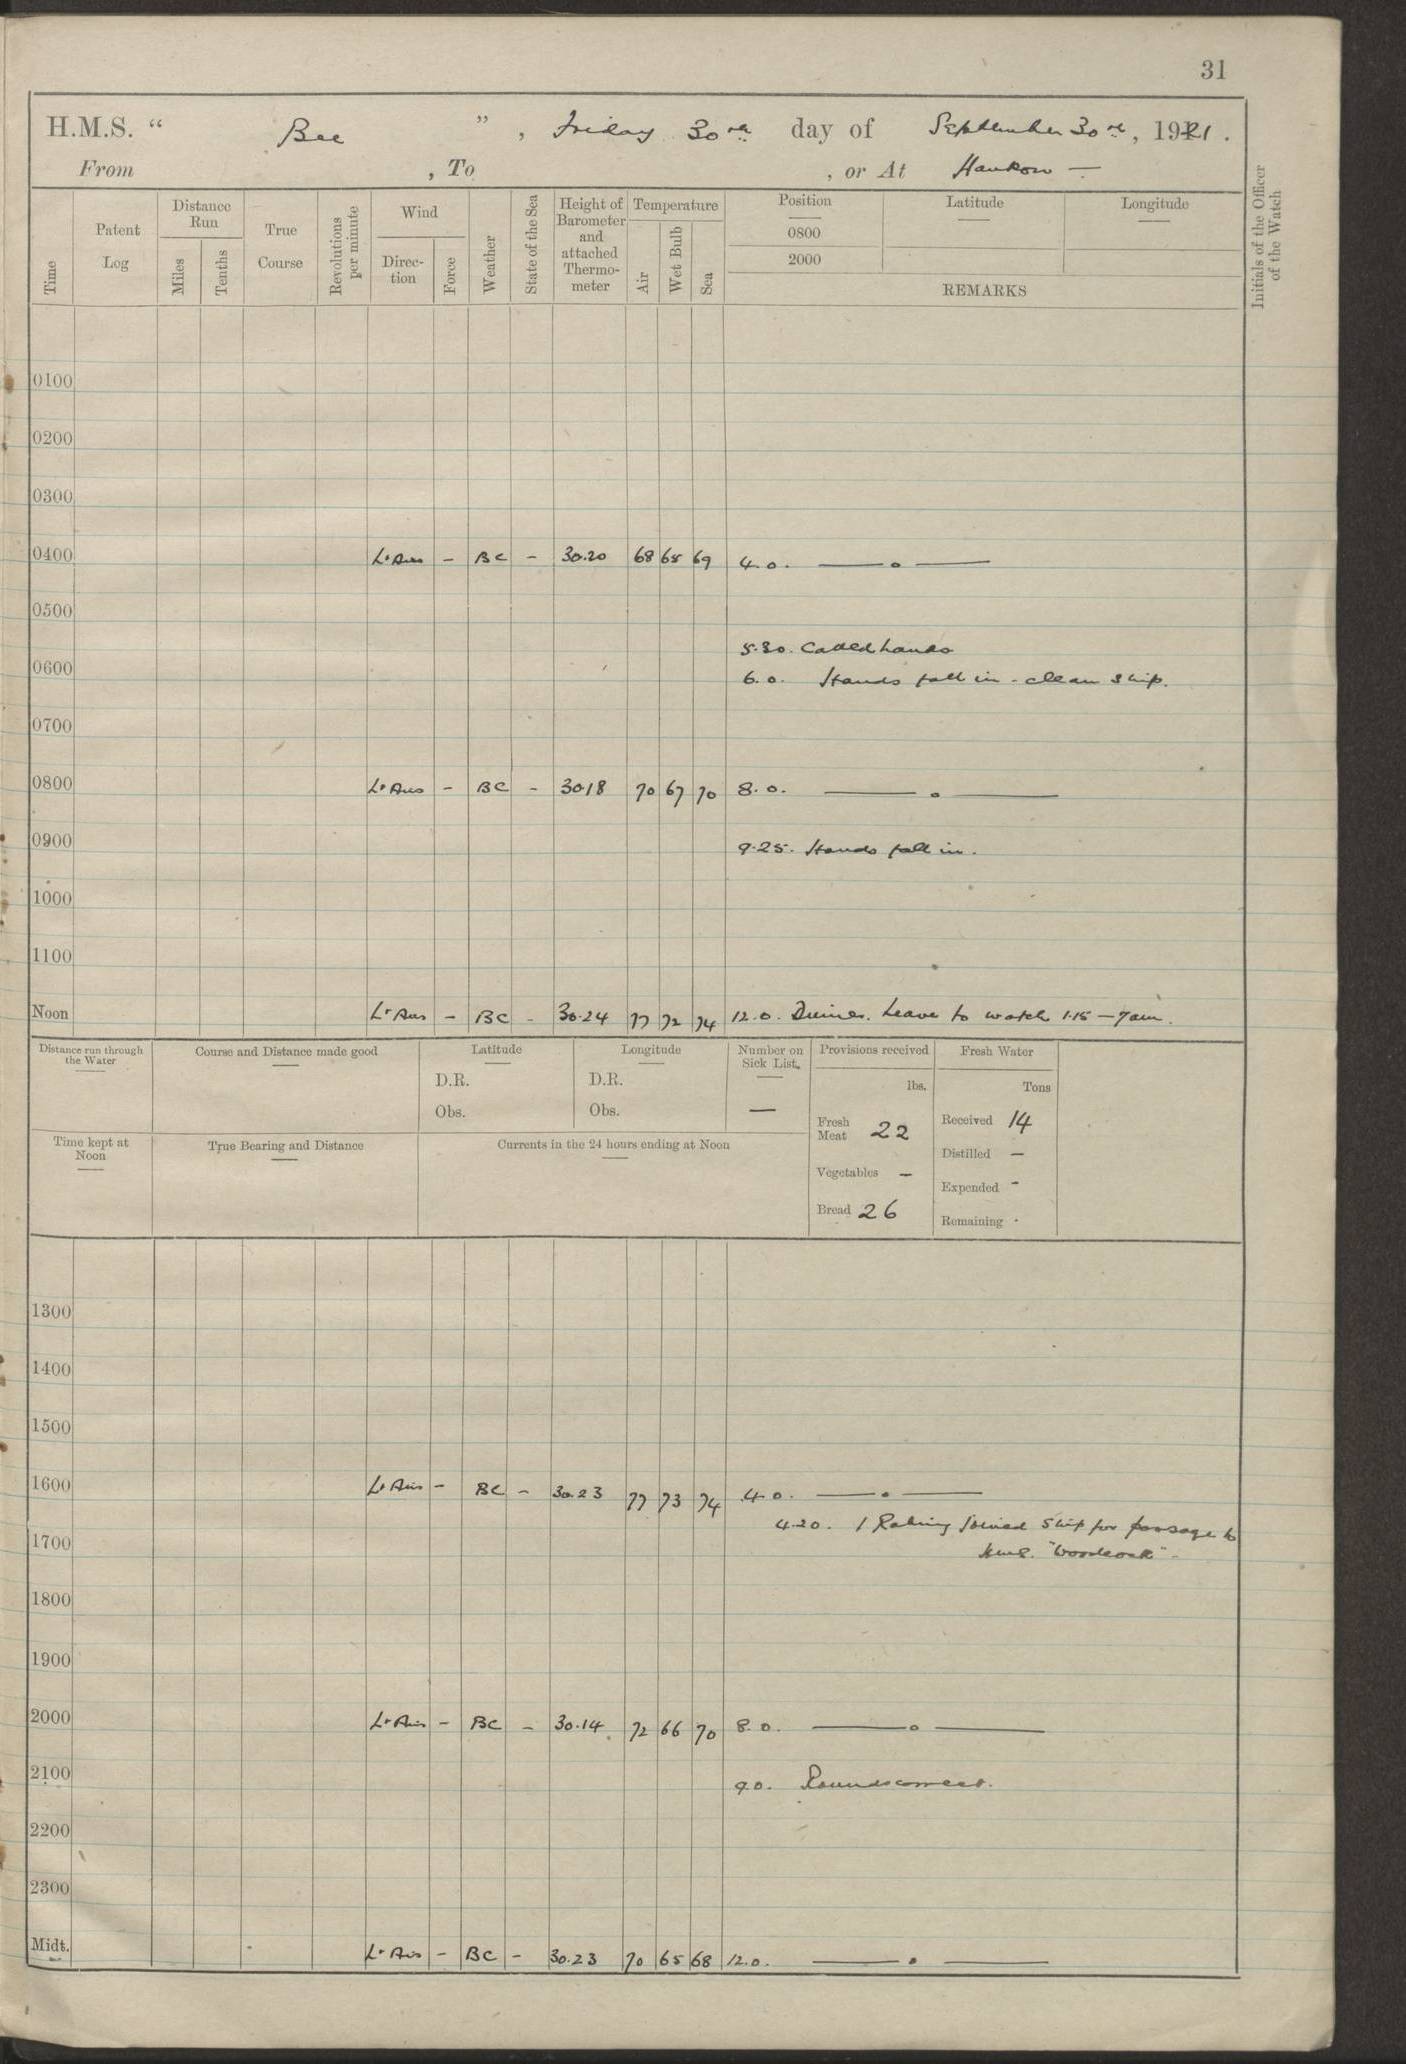 31
H.M.S. “ Bee ” , Friday 30th day of September 30th , 1921 .
From , To , or At Hankow —
Time
Patent Log
Distance Run
Miles
Tenths
True Course
Revolutions per minute
Wind
Direc-tion
Force
Weather
State of the Sea
Height of Barometer and attached Thermo-meter
Temperature
Air
Wet Bulb
Sea
Position
0800
2000
Latitude
Longitude
REMARKS
Initials of the Officer of the Watch
0100
0200
0300
0400 Lt Airs – BC – 30.20 68 65 69 4.0. —— o ——
0500
5.30. Called hands
0600 6.0. Hands fall in - clean ship.
0700
0800 Lt Airs – BC – 30.18 70 67 70 8.0. —— o ——
0900 9.25. Hands fall in.
1000
1100
Noon Lt Airs – BC – 30.24 77 72 74 12.0. Dinner. Leave to watch 1.15 – 7am.
Distance run through the Water
Course and Distance made good
Latitude
D.R.
Obs.
Longitude
D.R.
Obs.
Number on Sick List.
—
Provisions received
lbs.
Fresh Meat 22
Vegetables –
Bread 26
Fresh Water
Tons
Received 14
Distilled –
Expended -
Remaining .
Time kept at Noon
True Bearing and Distance
Currents in the 24 hours ending at Noon
1300
1400
1500
1600 Lt Airs – BC – 30.23 77 73 74 4.0. —— o ——
4.20. 1 Rating joined ship for passage to
1700 H.M.S. "Woodcock" -
1800
1900
2000 Lt Airs – BC – 30.14 72 66 70 8.0. —— o ——
2100 9.0. Rounds correct.
2200
2300
Midt. Lt Airs – BC – 30.23 70 65 68 12.0. —— o ——